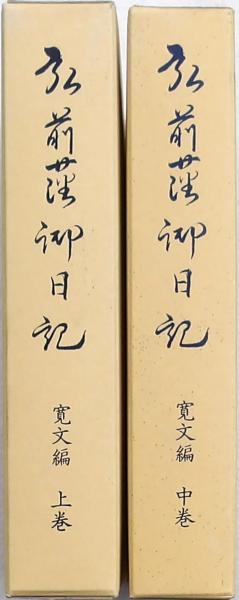 弘前藩御日記
寛文編 上巻
弘前藩御日記
寛文編 中巻